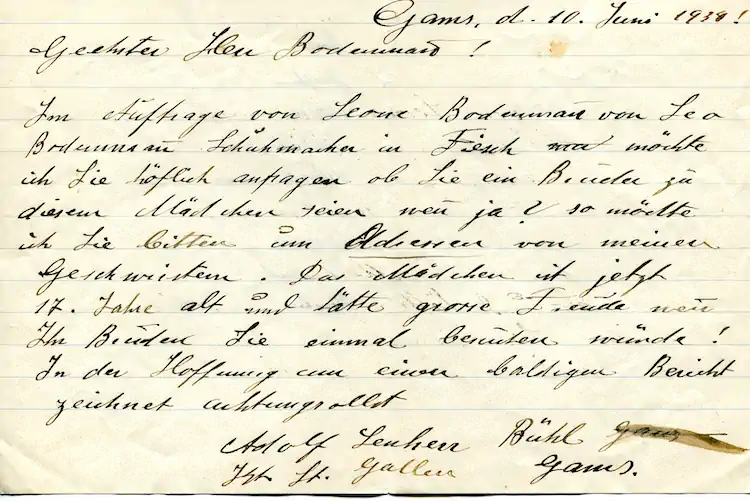 Gams, d. 10. Juni 1939!
Geehrter Herr Bodenmann!
Im Auftrage von Leonie Bodenmañ von Leo
Bodenmañ Schuhmacher in Fiesch möchte
ich Sie höflich anfragen ob Sie ein Bruder zu
diesem Mädchen seien weñ ja? so möchte
ich Sie bitten um Adressen von meinen
Geschwistern. Das Mädchen ist jetzt
17. Jahre alt und hätte grosse Freude weñ
Ihr Bruder Sie einmal besuchen würde!
In der Hoffnung um einen baldigen Bericht
zeichnet achtungsvollst
Adolf Lenherr Bühl
Gams.
St. Gallen